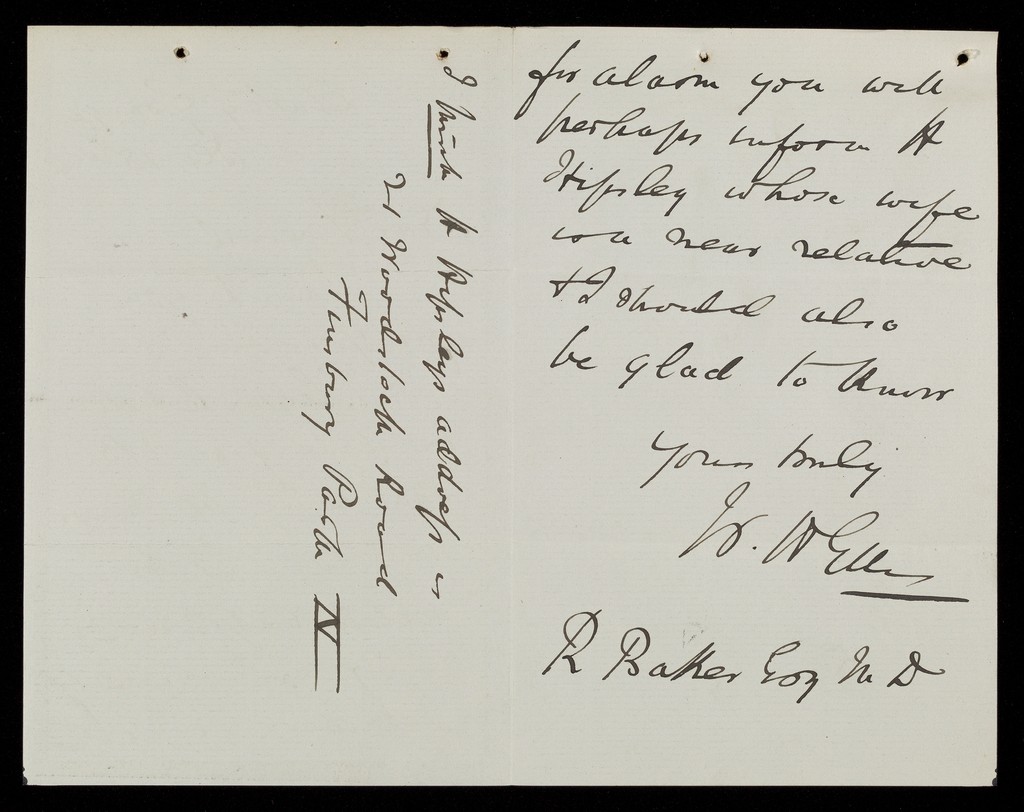 for alarm you will
perhaps inform H
Hipsley whose wife
is a near relative
& I should also
be glad to know
Yours truly
W. H Ellis
R Baker Esq M D
I think H Hipsleys address is
21 Woodstock Road
Finsbury Park N